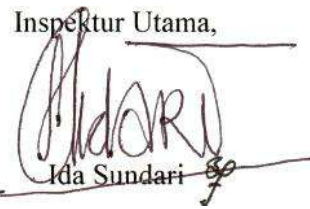 Inspektur Utama,
Ida Sundari